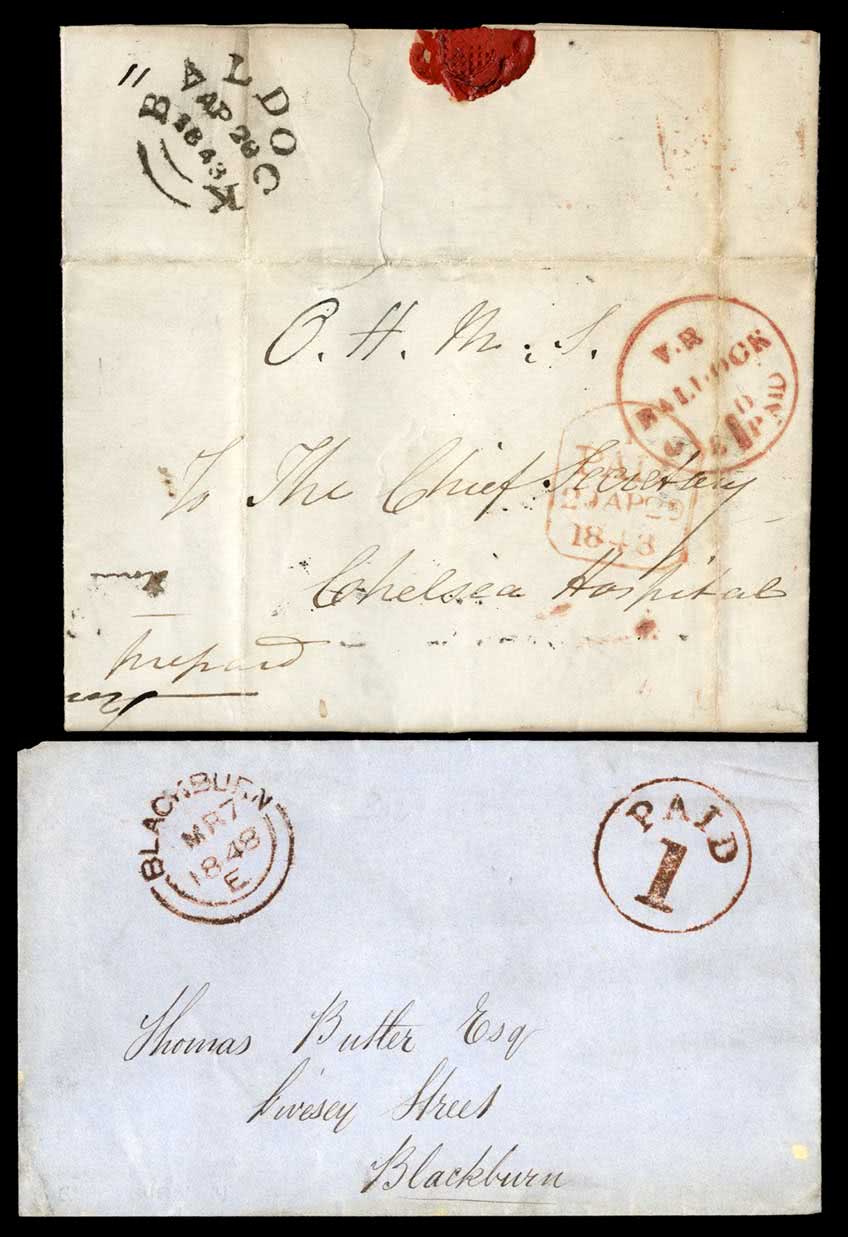 11
BALDOCK
AP 29
1843
O. H. M. S.
V.R
BALDOCK
1D
PAID
To The Chief Secretary
PAID
29 AP 29
1843
Chelsea Hospital
prepaid
BLACKBURN
MR 7
1848
E
PAID
1
Thomas Butler Esq
Livesey Street
Blackburn